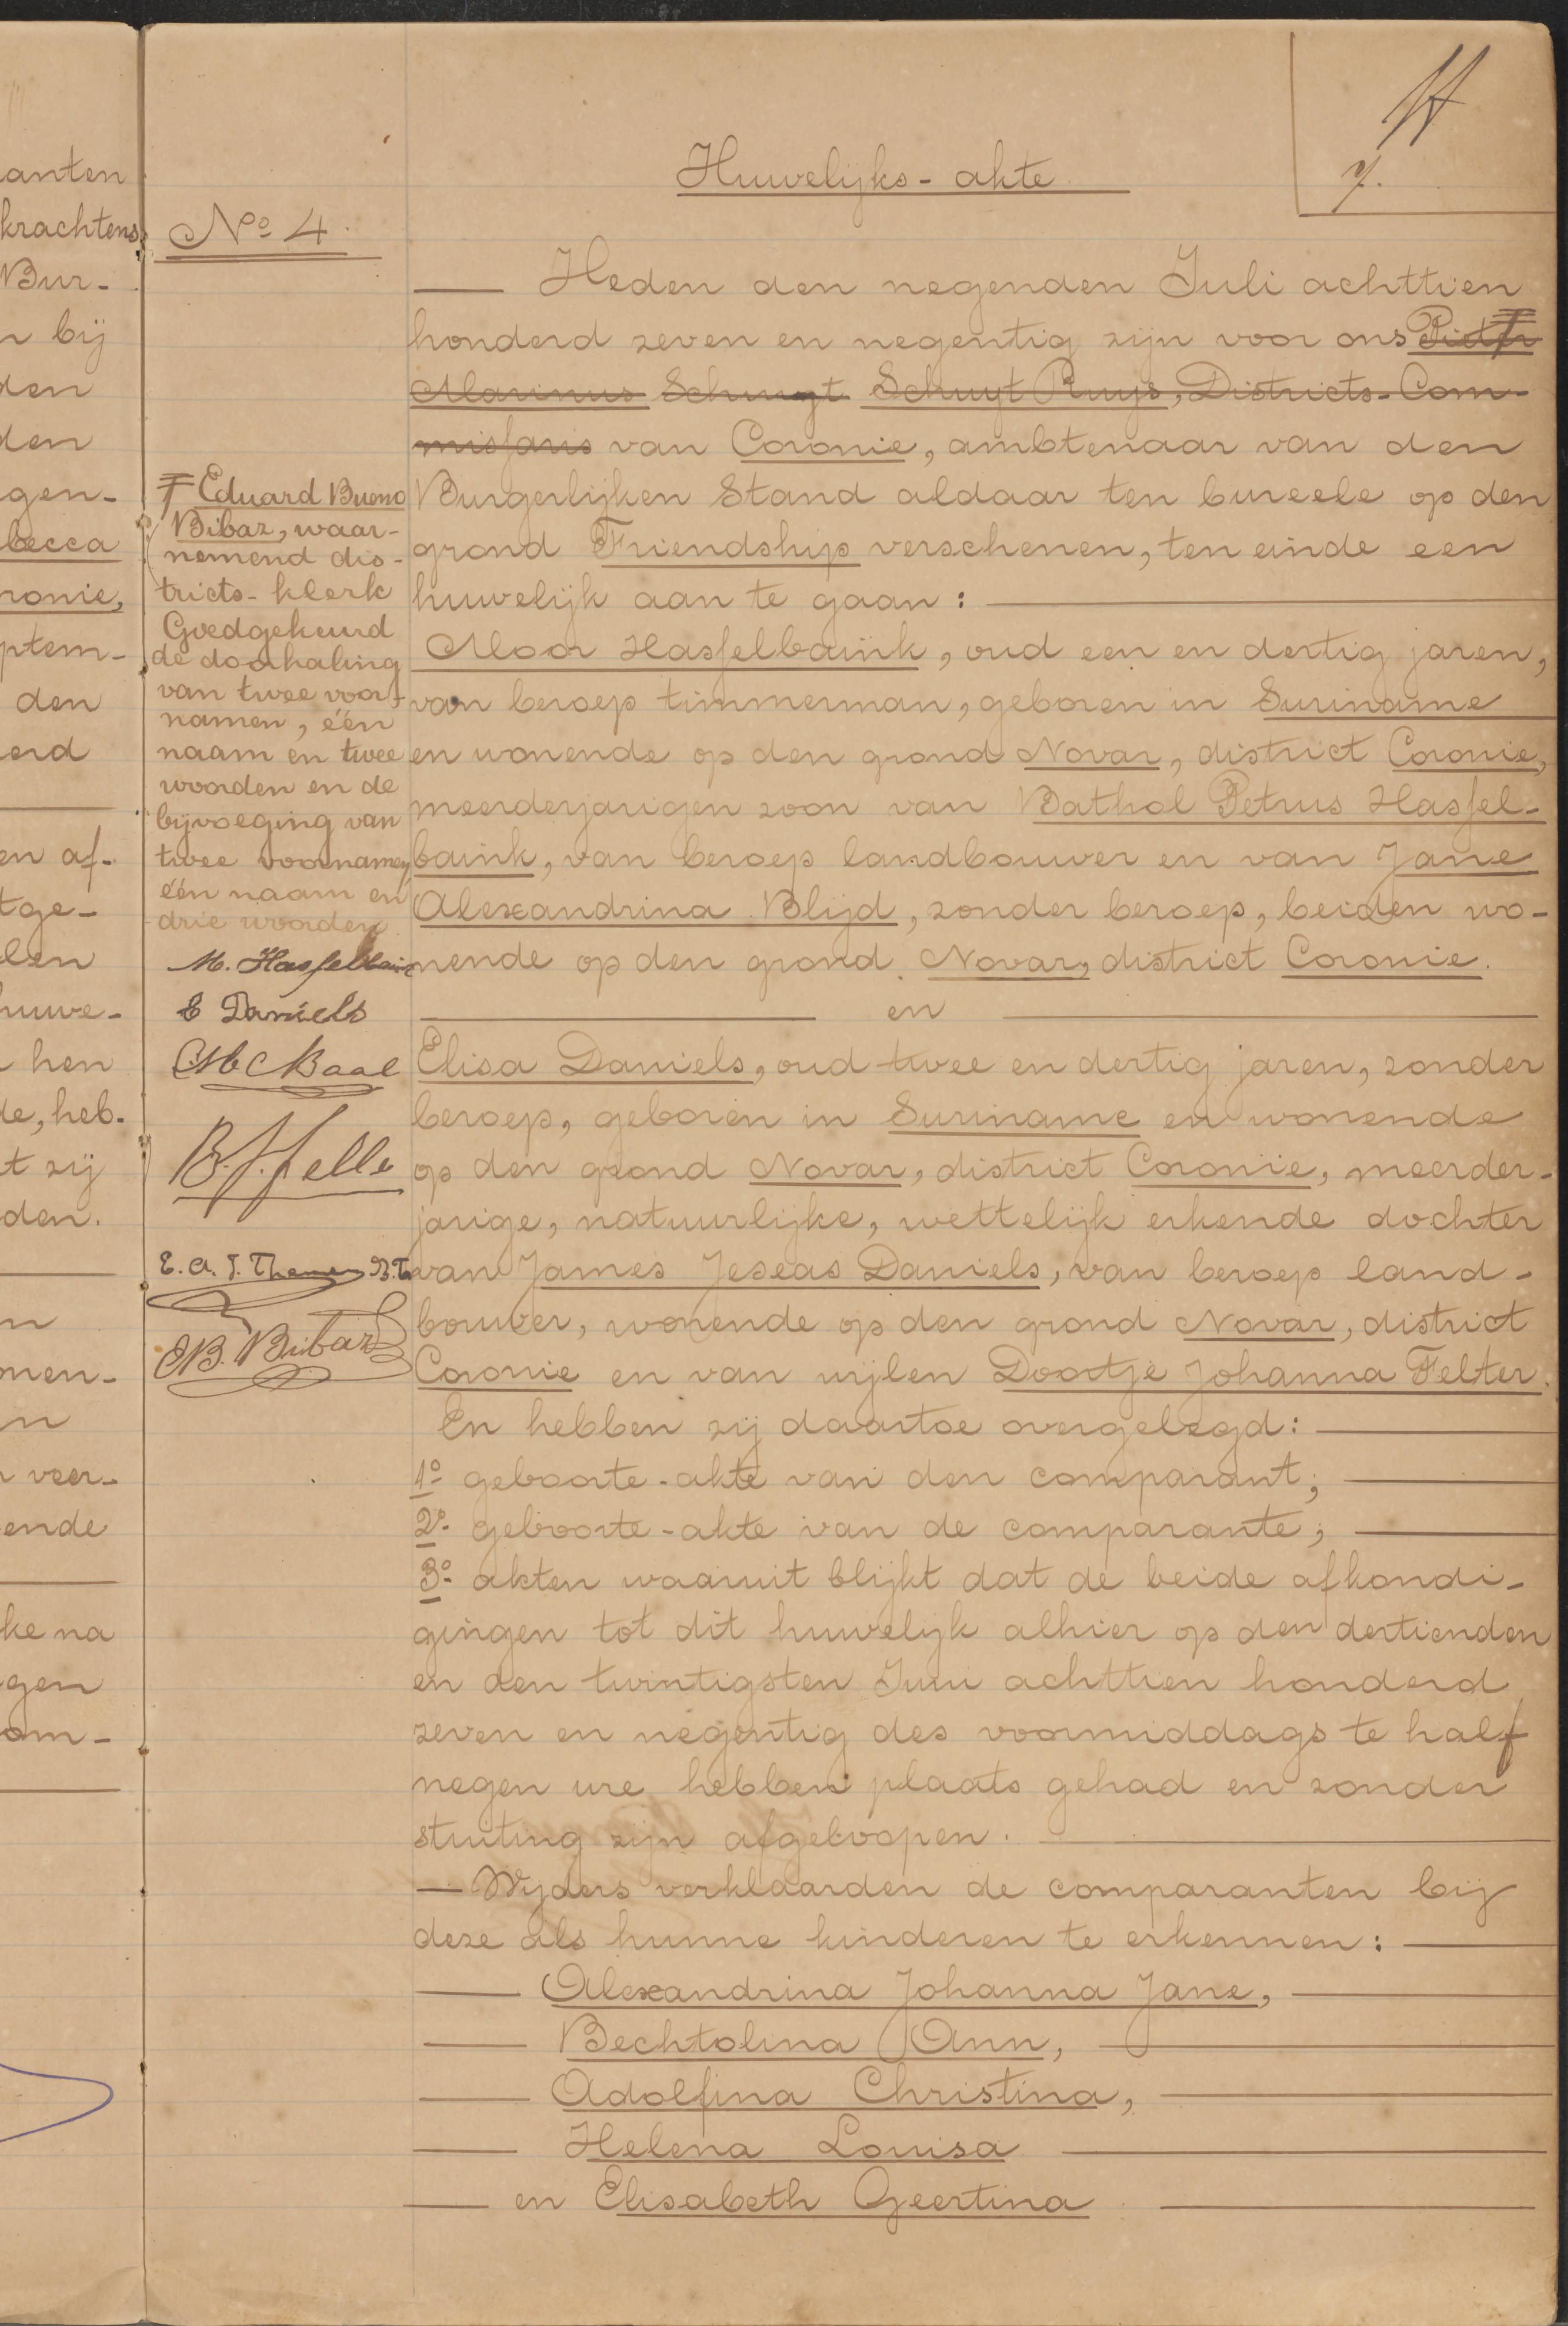 anten
krachtens
Bur-
n bij
den
den
gen-
becca
ronie,
ptem-
den
erd
en af-
tge-
len
huwe-
hen
de, heb-
t zij
den.
n
nen-
n
veer-
ende
ke na
gen
om-
7.
Huwelijks-akte
No 4.
Heden den negenden Juli achttien
honderd zeven en negentig zijn voor ons Pieter
Marinus Schuyt Schuyt Ruys, Districts-Com-
missaris van Coronie, ambtenaar van den
Burgerlijken Stand aldaar ten bureele op den
grond Friendship verschenen, ten einde een
huwelijk aan te gaan:
Moor Hasselbaink, oud een en dertig jaren,
van beroep timmerman, geboren in Suriname
en wonende op den grond Novar, district Coronie,
meerderjarigen zoon van Bathol Petrus Hassel-
baink, van beroep landbouwer en van Jane
Alexandrina Blijd, zonder beroep, beiden wo-
nende op den grond Novar, district Coronie.
en
Elisa Daniels, oud twee en dertig jaren, zonder
beroep, geboren in Suriname en wonende
op den grond Novar, district Coronie, meerder-
jarige, natuurlijke, wettelijk erkende dochter
van James Jeseas Daniels, van beroep land-
bouwer, wonende op den grond Novar, district
Coronie en van wijlen Dootje Johanna Felter.
En hebben zij daartoe overgelegd:
1o geboorte-akte van den comparant;
2o geboorte-akte van de comparante;
3o akten waaruit blijkt dat de beide afkondi-
gingen tot dit huwelijk alhier op den dertienden
en den twintigsten Juni achttien honderd
zeven en negentig des voormiddags te half
negen ure hebben plaats gehad en zonder
stuiting zijn afgeloopen.
Wijders verklaarden de comparanten bij
deze als hunne kinderen te erkennen:
Alexandrina Johanna Jane,
Bechtolina Ann,
Adolfina Christina,
Helena Louisa
en Elisabeth Geertina
Eduard Bueno
Bibaz, waar-
nemend dis-
tricts-klerk
Goedgekeurd
de doorhaling
van twee voor-
namen, één
naam en twee
woorden en de
bijvoeging van
twee voornamen,
één naam en
drie woorden.
M. Hasselbaink
E Daniels
C M C Baal
B. J. Jelle
E. A. J.
E B. Bibaz